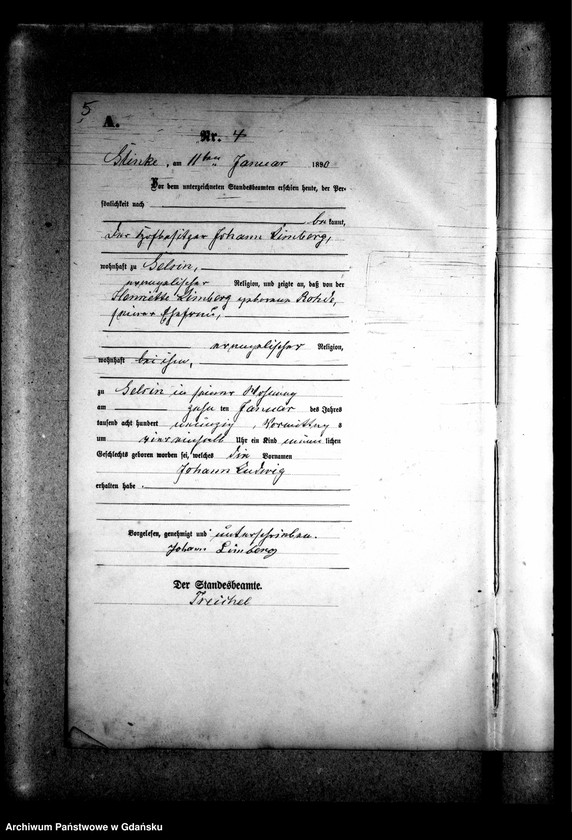 5
A.
Nr. 4
Glinke, am 11ten Januar 1890
Vor dem unterzeichneten Standesbeamten erschien heute, der Per-
sönlichkeit nach
be kannt,
der Hofbesitzer Johann Limberg,
wohnhaft zu Gelsin,
evangelischer Religion, und zeigte an, daß von der
Henriette Limberg geborenen Rohde,
seiner Ehefrau,
evangelischer Religion,
wohnhaft bei ihm,
zu Gelsin in seiner Wohnung
am zehn ten Januar des Jahres
tausend acht hundert neunzig, Vormittag s
um Uhr ein Kind männ lichen
Geschlechts geboren worden sei, welches die Vornamen
Johann Ludwig
erhalten habe.
Vorgelesen, genehmigt und unterschrieben.
Johann Limberg
Der Standesbeamte.
Treichel
Archiwum Państwowe w Gdańsku